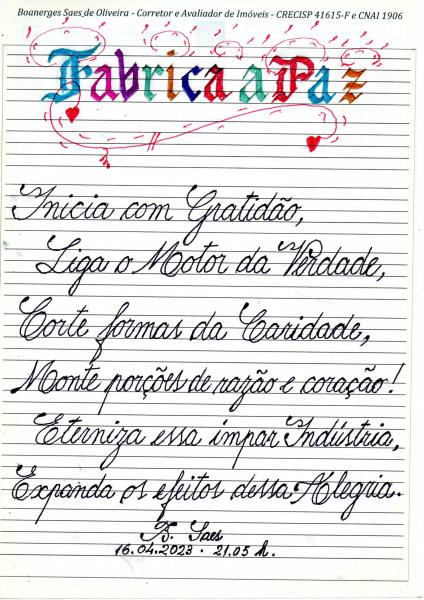 Boanerges Saes de Oliveira - Corretor e Avaliador de Imóveis - CRECISP 41615-F e CNAI 1906
Fabrica a Paz
Inicia com Gratidão,
Liga o Motor da Verdade,
Corte formas da Caridade,
Monte porções de razão e coração!
Eterniza essa impar Indústria,
Expanda os efeitos dessa Alegria.
B. Saes
16.04.2023 · 21,05 h.